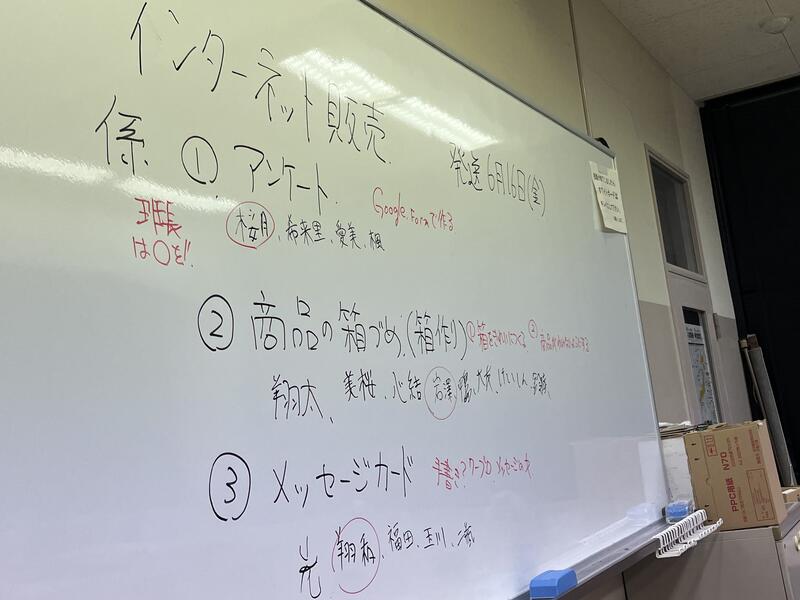 インターネット販売
発送6月16日(金)
係 ① アンケート
Google Formで作る
班長は○を!!
桜月、希来里、愛美、楓
② 商品の箱づめ、(箱作り) ①箱をきれいにつくる ②商品がわれないようにする
翔太、美桜、心結、岩澤、大矢、けいしん、
③ メッセージカード 手書き?ワープロ メッセージの
光 翔和、福田、玉川、二瓶
PPC用紙 N70